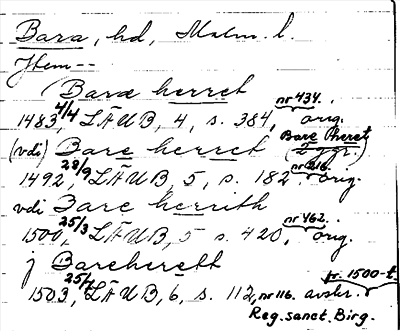 Bara, hd, Malm. l.
Item --
Baræ herret
nr 434.
1483, 4/4 LÄUB, 4, s. 384, orig.
(vdi) Bare herret (Bare Hheret 2 ggr.)
nr 216.
1492, 28/9 LÄUB, 5, s. 182. orig.
vdi Bare herrith
nr 462.
1500, 25/3 LÄUB, 5 s. 420, orig.
j Bareherett
fr. 1500-t.
1503, 25/4 LÄUB, 6, s. 112, nr 116. avskr.
Reg. sanct. Birg.